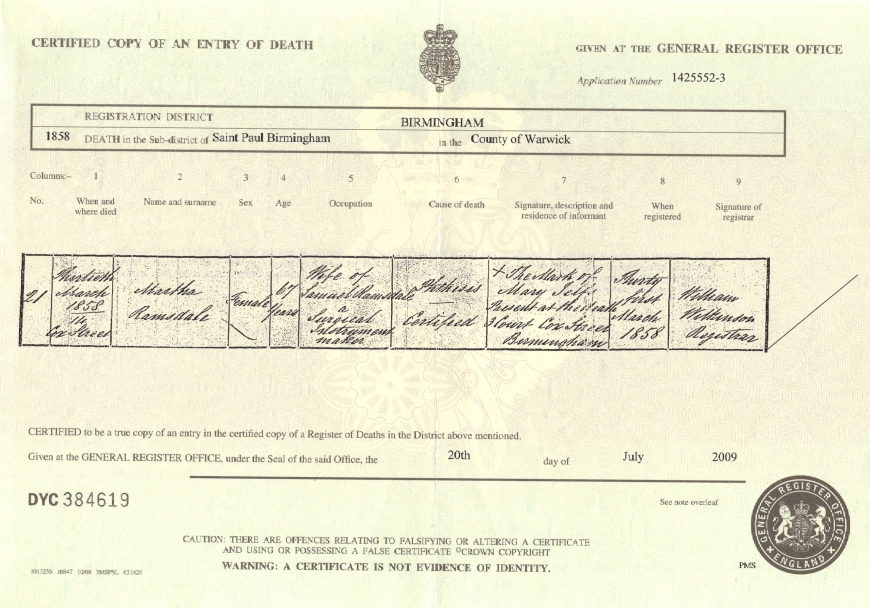 CERTIFIED COPY OF AN ENTRY OF DEATH
GIVEN AT THE GENERAL REGISTER OFFICE
Application Number 1425552-3
REGISTRATION DISTRICT BIRMINGHAM
1858 DEATH in the Sub-district of Saint Paul Birmingham in the County of Warwick
Columns:- 1 2 3 4 5 6 7 8 9
No. When and where died Name and surname Sex Age Occupation Cause of death Signature, description and residence of informant When registered Signature of registrar
21
Thirtieth
March
1858
Cox Street
Martha
Ramsdale
Female
67
Years
Wife of
Samuel Ramsdale
a
Surgical
Instrument
maker
Phthisis
Certified
+ The Mark of
Mary
Present at the death
Court Cox Street
Birmingham
Thirty
first
March
1858
William
Wilkinson
Registrar
CERTIFIED to be a true copy of an entry in the certified copy of a Register of Deaths in the District above mentioned.
Given at the GENERAL REGISTER OFFICE, under the Seal of the said Office, the 20th day of July 2009
DYC 384619
See note overleaf
CAUTION: THERE ARE OFFENCES RELATING TO FALSIFYING OR ALTERING A CERTIFICATE
AND USING OR POSSESSING A FALSE CERTIFICATE ©CROWN COPYRIGHT
WARNING: A CERTIFICATE IS NOT EVIDENCE OF IDENTITY.
GENERAL REGISTER OFFICE
ENGLAND
PMS